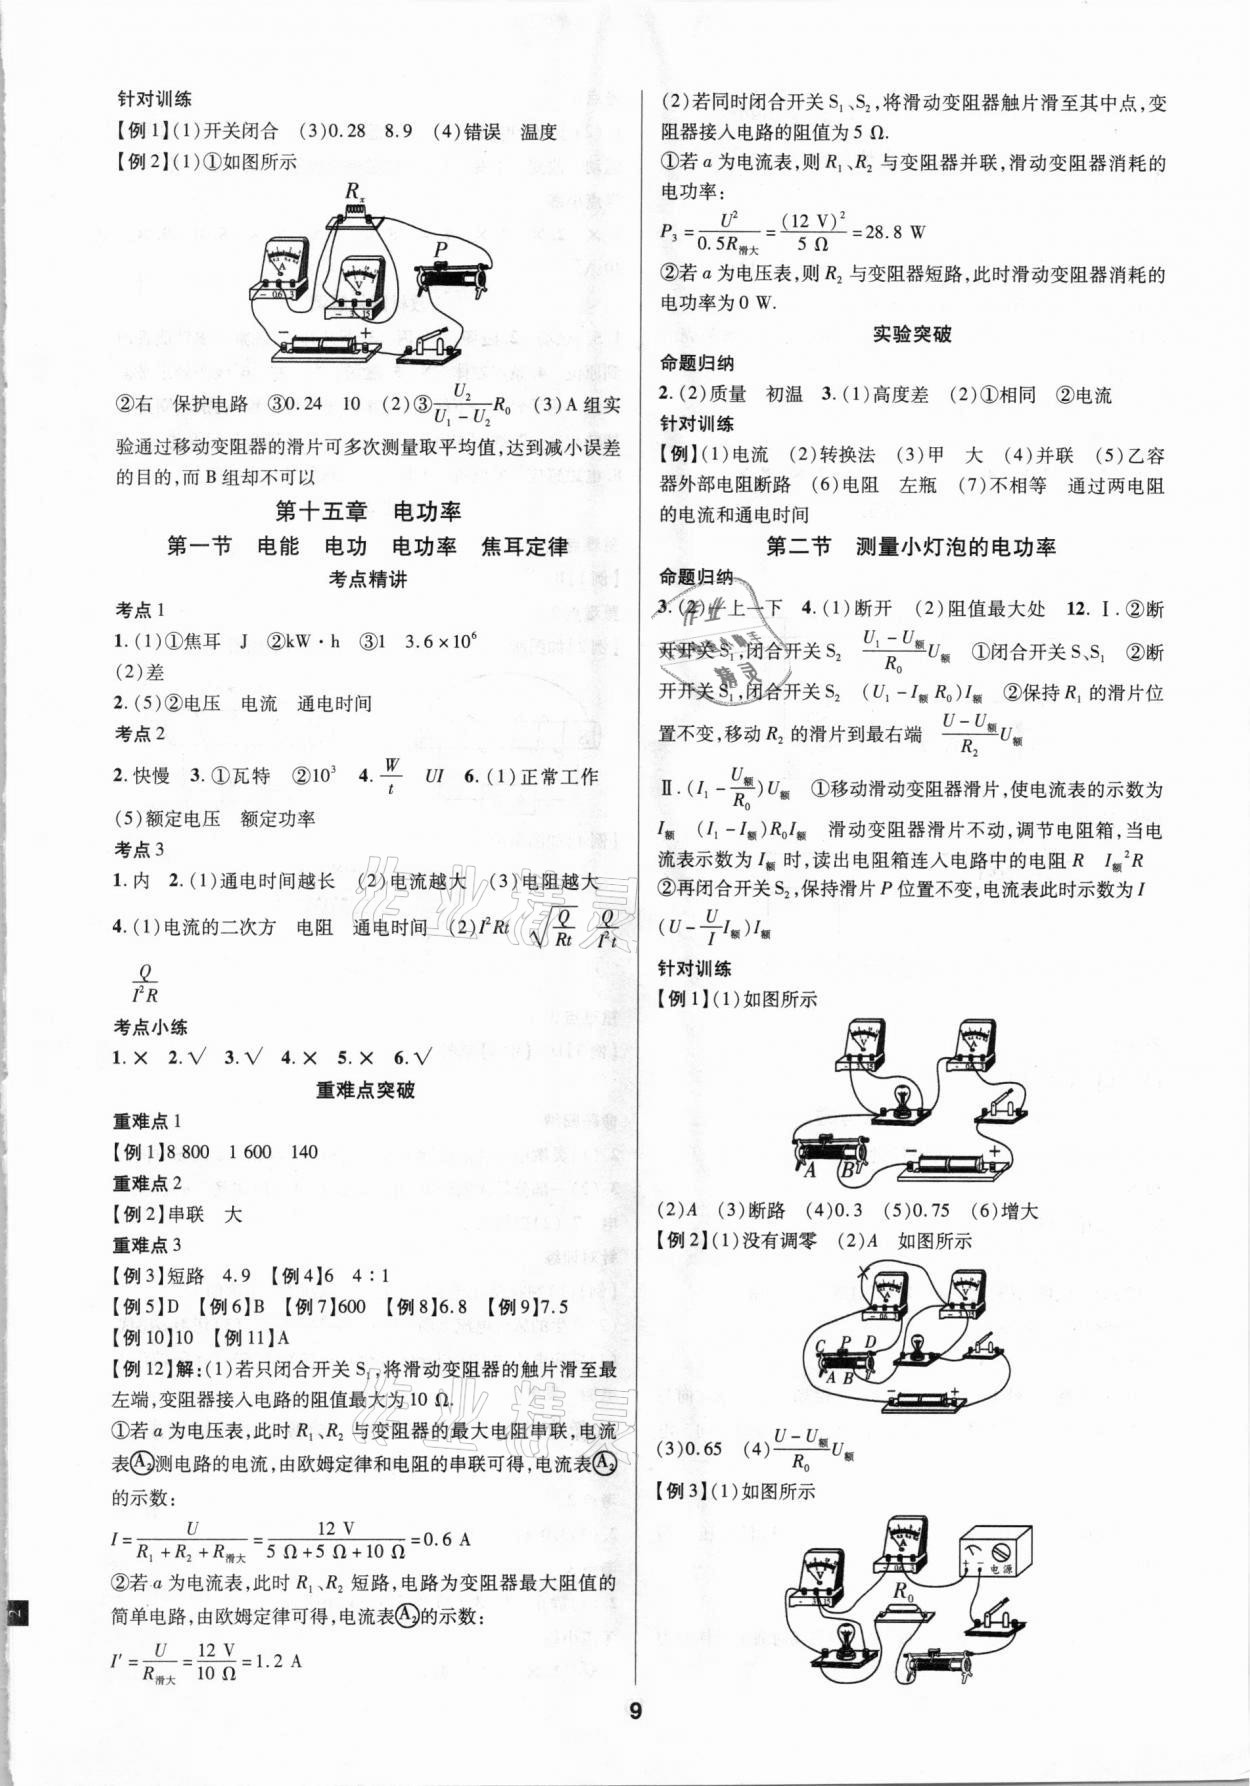 针对训练
【例1】(1)开关闭合　(3)0.28　8.9　(4)错误　温度
【例2】(1)①如图所示
Rx
A
P
V
- 0.6 3
- 3 15
- +
②右　保护电路　③0.24　10　(2)③U₂/(U₁-U₂)R₀　(3)A组实
验通过移动变阻器的滑片可多次测量取平均值,达到减小误差
的目的,而B组却不可以
第十五章　电功率
第一节　电能　电功　电功率　焦耳定律
考点精讲
考点1
1.(1)①焦耳　J　②kW·h　③1　3.6×10⁶
(2)差
2.(5)②电压　电流　通电时间
考点2
2.快慢　3.①瓦特　②10³　4.W/t　UI　6.(1)正常工作
(5)额定电压　额定功率
考点3
1.内　2.(1)通电时间越长　(2)电流越大　(3)电阻越大
4.(1)电流的二次方　电阻　通电时间　(2)I²Rt　√(Q/Rt)　Q/(I²t)
Q/(I²R)
考点小练
1.×　2.√　3.√　4.×　5.×　6.√
重难点突破
重难点1
【例1】8 800　1 600　140
重难点2
【例2】串联　大
重难点3
【例3】短路　4.9　【例4】6　4∶1
【例5】D　【例6】B　【例7】600　【例8】6.8　【例9】7.5
【例10】10　【例11】A
【例12】解:(1)若只闭合开关S₁,将滑动变阻器的触片滑至最
左端,变阻器接入电路的阻值最大为10 Ω.
①若a为电压表,此时R₁、R₂与变阻器的最大电阻串联,电流
表A₂测电路的电流,由欧姆定律和电阻的串联可得,电流表A₂
的示数:
I=U/(R₁+R₂+R滑大)=12 V/(5 Ω+5 Ω+10 Ω)=0.6 A
②若a为电流表,此时R₁、R₂短路,电路为变阻器最大阻值的
简单电路,由欧姆定律可得,电流表A₂的示数:
I′=U/R滑大=12 V/10 Ω=1.2 A
(2)若同时闭合开关S₁、S₂,将滑动变阻器触片滑至其中点,变
阻器接入电路的阻值为5 Ω.
①若a为电流表,则R₁、R₂与变阻器并联,滑动变阻器消耗的
电功率:
P₃=U²/0.5R滑大=(12 V)²/5 Ω=28.8 W
②若a为电压表,则R₂与变阻器短路,此时滑动变阻器消耗的
电功率为0 W.
实验突破
命题归纳
2.(2)质量　初温　3.(1)高度差　(2)①相同　②电流
针对训练
【例】(1)电流　(2)转换法　(3)甲　大　(4)并联　(5)乙容
器外部电阻断路　(6)电阻　左瓶　(7)不相等　通过两电阻
的电流和通电时间
第二节　测量小灯泡的电功率
命题归纳
3.(2)一上一下　4.(1)断开　(2)阻值最大处　12.Ⅰ.②断
开开关S₁,闭合开关S₂　(U₁-U额)/R₀U额　①闭合开关S、S₁　②断
开开关S₁,闭合开关S₂　(U₁-I额R₀)I额　②保持R₁的滑片位
置不变,移动R₂的滑片到最右端　(U-U额)/R₂U额
Ⅱ.(I₁-U额/R₀)U额　①移动滑动变阻器滑片,使电流表的示数为
I额　(I₁-I额)R₀I额　滑动变阻器滑片不动,调节电阻箱,当电
流表示数为I额时,读出电阻箱连入电路中的电阻R　I额²R
②再闭合开关S₂,保持滑片P位置不变,电流表此时示数为I
(U-U/I I额)I额
针对训练
【例1】(1)如图所示
V
A
A B
- +
(2)A　(3)断路　(4)0.3　(5)0.75　(6)增大
【例2】(1)没有调零　(2)A　如图所示
C P D
A B
- +
(3)0.65　(4)(U-U额)/R₀U额
【例3】(1)如图所示
A
V
R₀
+ -
电源
作业精灵
作业精灵
作业
精灵
2
9